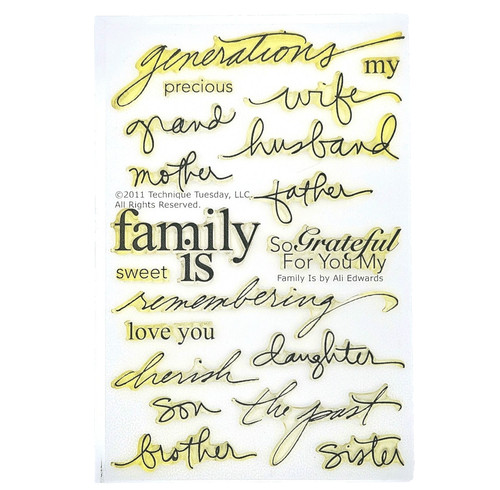 generations
my
precious
wife
grand
husband
mother
father
©2011 Technique Tuesday, LLC.
All Rights Reserved.
family
is
So Grateful
For You My
sweet
Family Is by Ali Edwards
remembering
love you
daughter
cherish
son
the past
brother
sister